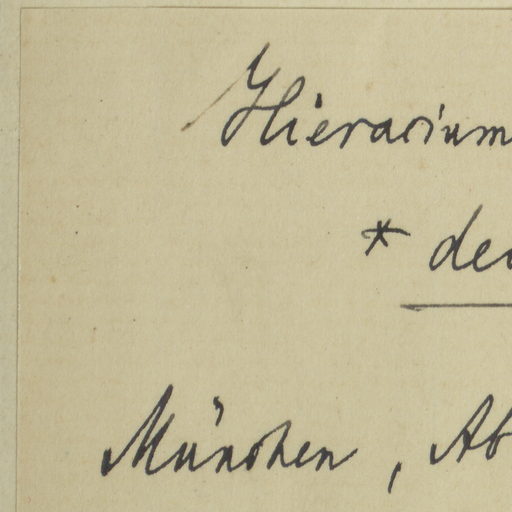 Hieracium
* de
München, Ab